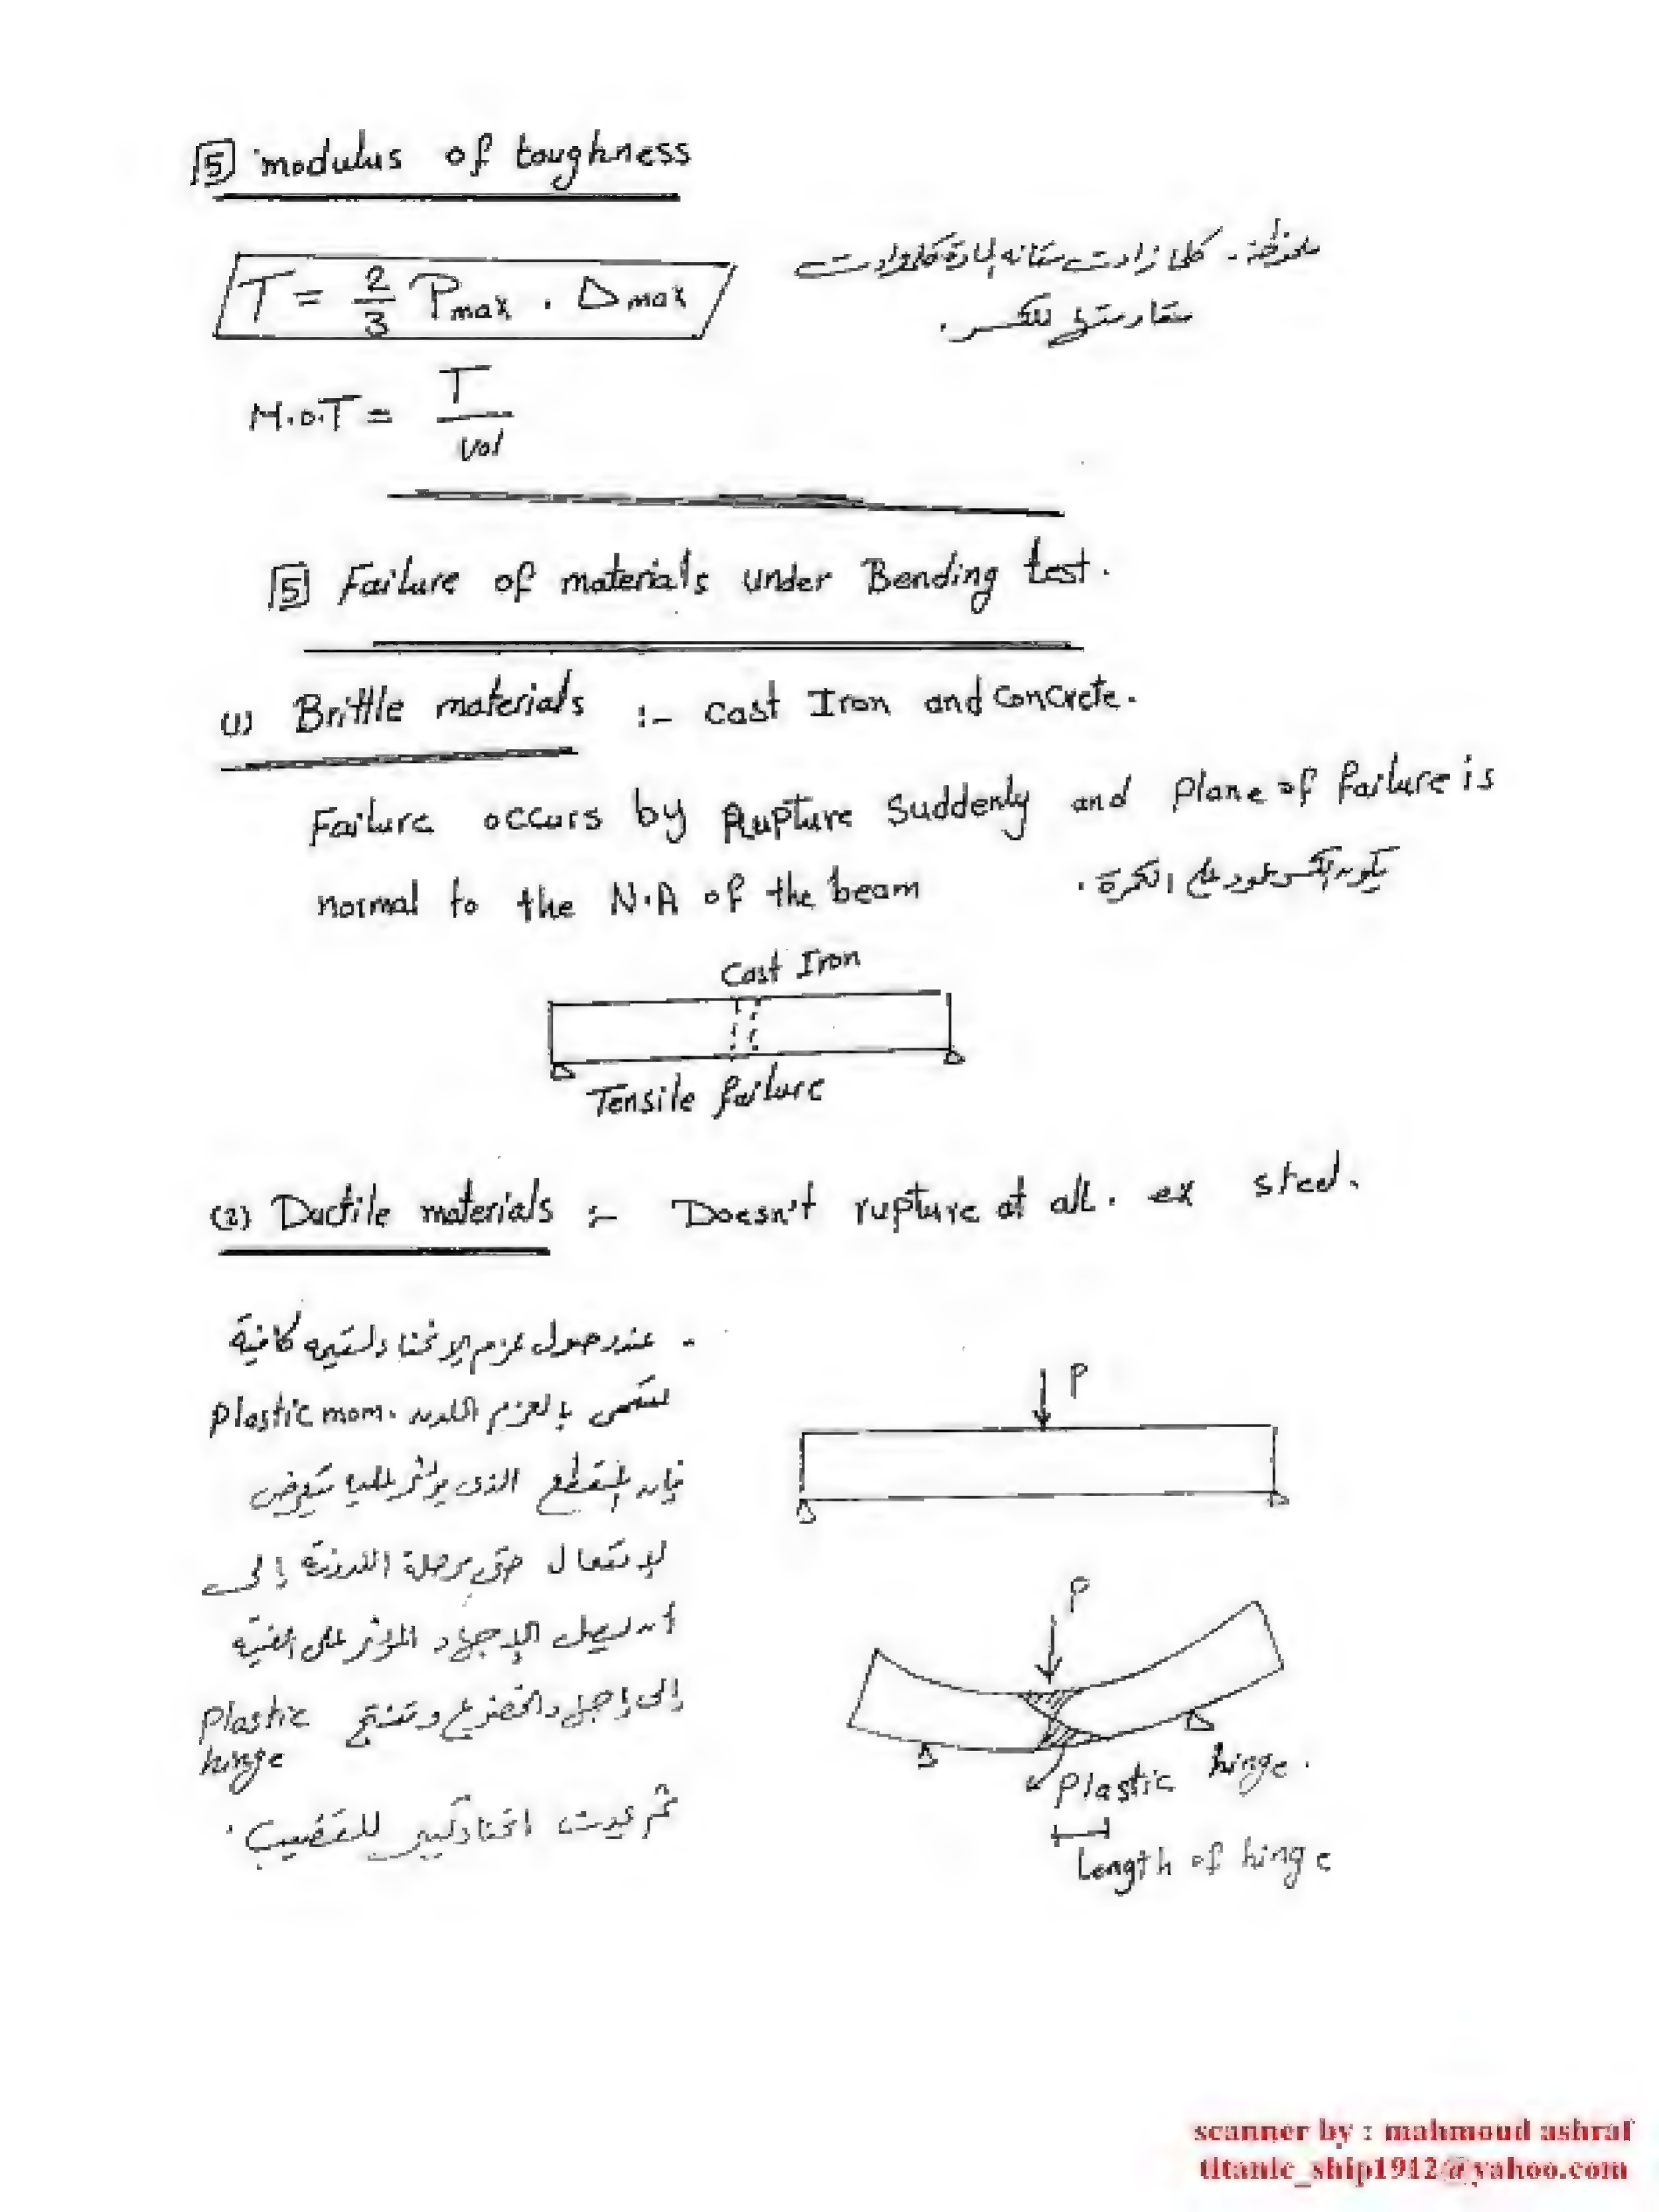 5 modulus of toughness
T = 2/3 Pmax . Δmax
ملحوظة - كلما زادت متانه المادة كلما زادت
مقاومتها للكسر .
M.O.T = T/vol
5 Failure of materials under Bending test.
(1) Brittle materials :- cast Iron and concrete.
Failure occurs by Rupture suddenly and plane of failure is
normal to the N.A of the beam
يكون الكسر عمود على الكمرة .
Cast Iron
Tensile failure
(2) Ductile materials :- Doesn't rupture at all . ex steel.
- عند وصول عزم الانحناء لقيمه كافية
تسمى بالعزم اللدن plastic mom.
فان المقطع الذى يؤثر عليه يتعرض
لانفعال حتى مرحلة اللدونة إلى
أن يصل الإجهاد المؤثر على
إلى إجهاد الخضوع وتنتج plastic
hinge
ثم يحدث انحناء كبير للقضيب .
P
P
plastic hinge .
Length of hinge
scanner by : mahmoud ashraf
titanic_ship1912@yahoo.com